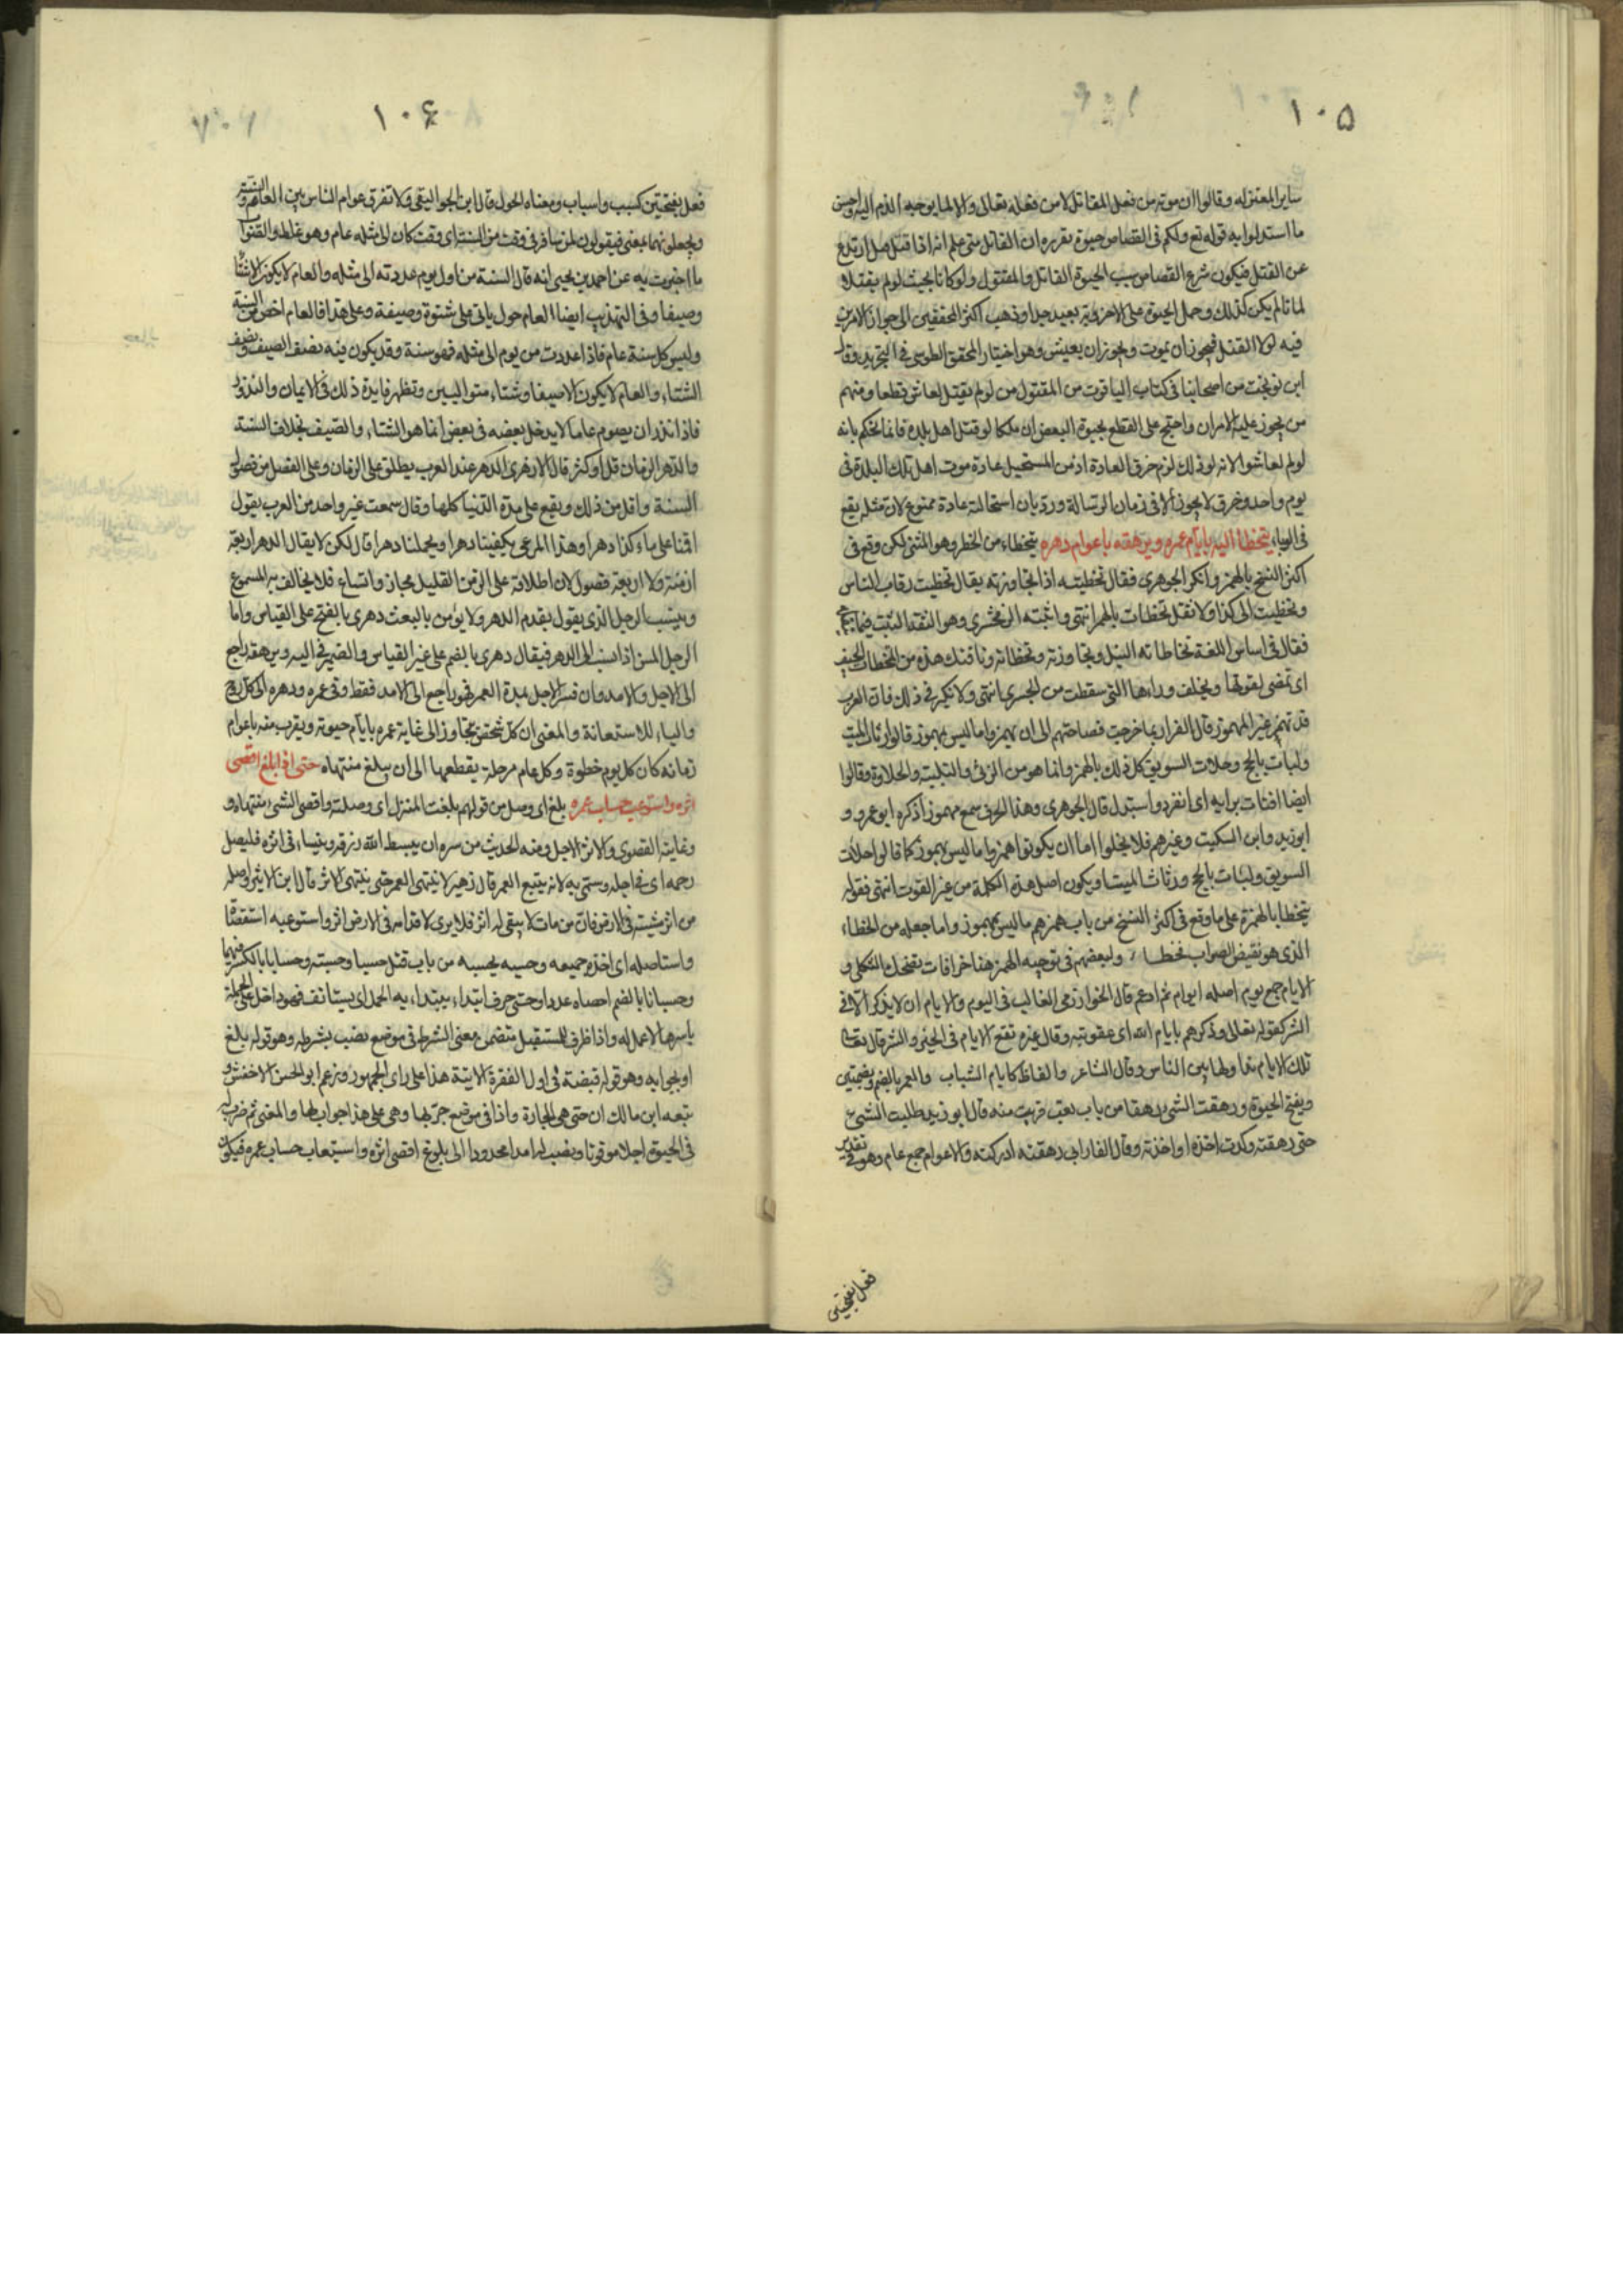 ١٠٥
ساير المعتزله وقالوا ان موته من فعل القاتل لا من فعله تعالى والا لما يوجبه الذم اليه واحسن
ما استدلوا به قوله تع ولكم فى القصاص حيوة تقريره ان القاتل متى علم انه اذا قتل قتل ارتدع
عن القتل فيكون شرع القصاص سبب الحيوة القاتل والمقتول ولو كانا بحيث لو لم يقتلا
لماتا لم يكن كذلك وحمل الحيوة على الاخروية بعيد جدا وذهب اكثر المحققين الى جواز الامرين
فيه لولا القتل فيجوز ان يموت ويجوز ان يعيش وهو اختيار المحقق الطوسى فى التجريد وقال
ابن نوبخت من اصحابنا فى كتاب الياقوت من المقتول من لو لم يقتل لعاش قطعا ومنهم
من يجوز عليه الامران واحتج على القطع بحيوة البعض ان ملكا لو قتل اهل بلدة فانا نحكم بانه
لو لم لعاشوا لانه لو ذلك لزم خرق العادة اذ من المستحيل عادة موت اهل تلك البلدة فى
يوم واحد وخرق لا يجوز الا فى زمان الرسالة ورد بان استحالته عادة ممنوع لان مثله يقع
فى الوباء يتخطا اليه بايام عمره ويرهقه باعوام دهره يتخطاء من الخطر وهو المشى لكن وقع فى
اكثر النسخ بالهمز وانكر الجوهرى فقال تخطيته اذا تجاوزته يقال تخطيت رقاب الناس
وتخطيت الى كذا ولا تقل تخطات بالهمز انتهى واثبته الزمخشرى وهو الثقة الثبت فيما
فقال فى اساس اللغة تخاطاته النبل وتجاوزته وتخطاته وناقتك هذه من المتخطات الجيف
اى تمضى لقوتها ويتخلف وراءها التى سقطت من الحسرى انتهى ولا نكير فى ذلك فان العرب
قد تهمز غير المهموز قال الفراء ربما خرجت فصاحتهم الى ان يهمزوا ما ليس بمهموز قالوا رثات الميت
ولبات بالحج وحلات السويق كل ذلك بالهمز وانما هو من الرثى والتلبية والحلاوة وقالوا
ايضا افتات برايه اى انفرد واستبدل قال الجوهرى وهذا الحرف سمع مهموزا ذكره ابو عمرو و
ابو زيد وابن السكيت وغيرهم فلا يخلوا اما ان يكونوا همزوا ما ليس بمهموز كما قالوا حلات
السويق ولبات بالحج ورثات الميت او يكون اصل هذه الكلمة من غير الفوت انتهى فقوله
يتخطا بالهمزة على ما وقع فى اكثر النسخ من باب همزهم ما ليس بمهموز واما جعله من الخطاء
الذى هو نقيض الصواب فخطا ولبعضهم فى توجيه الهمز هنا خرافات تضحك الثكلى و
الايام جمع يوم اصله ايوام ثم ادغم قال الخوارزمى الغالب فى اليوم والايام ان لا يذكر الا فى
الشر كقوله تعالى وذكرهم بايام الله اى عقوبته وقال غيره تقع الايام فى الخير والشر قال تعالى
تلك الايام نداولها بين الناس وقال الشاعر والفاظ كايام الشباب والعمر بالضم وبضمتين
وبفتح الحيوة ورهقت الشى رهقا من باب تعب قربت منه قال ابو زيد طلبت الشئ
حتى رهقته وكدت اخذه او اخذته وقال الفارابى رهقته ادركته والاعوام جمع عام وهو فى تقدير
فعل بفتحتين
١٠٦
فعل بفتحتين كسبب واسباب ومعناه الحول قال ابن الجواليقى ولا تفرق عوام الناس بين العام والسنة
ويجعلونهما بمعنى فيقولون لمن سافر فى وقت من السنة اى وقت كان الى مثله عام وهو غلط والصواب
ما اخبرت به عن احمد بن يحيى انه قال السنة من اول يوم عددته الى مثله والعام لا يكون الا شتا
وصيفا وفى التهذيب ايضا العام حول ياتى على شتوة وصيفة وعلى هذا فالعام اخص من السنة
وليس كل سنة عام فاذا عددت من يوم الى مثله فهو سنة وقد يكون فيه نصف الصيف ونصف
الشتاء والعام لا يكون الا صيفا وشتاء متواليين وتظهر فايدة ذلك فى الايمان والنذور
فاذا نذر ان يصوم عاما لا يدخل بعضه فى بعض انما هو الشتاء والصيف بخلاف السنة
والدهر الزمان قل او كثر قال الازهرى الدهر عند العرب يطلق على الزمان وعلى الفصل من فصول
السنة واقل من ذلك ويقع على مدة الدنيا كلها وقال سمعت غير واحد من العرب يقول
اقنا على ماء كذا دهرا وهذا المرعى يكفينا دهرا ويحملنا دهرا قال لكن لا يقال الدهر اربعة
ازمنة ولا اربعة فصول لان اطلاقه على الزمن القليل مجاز واتساع فلا يخالف به المسموع
وينسب الرجل الذى يقول بقدم الدهر ولا يؤمن بالبعث دهرى بالفتح على القياس واما
الرجل المسن اذا نسب الى الدهر فيقال دهرى بالضم على غير القياس والضمير فى اليه ويرهقه راجع
الى الاجل والامد وان فسر الاجل بمدة العمر فهو راجع الى الامد فقط وفى عمره ودهره الى كل روح
والباء للاستعانة والمعنى ان كل شخص يتجاوز الى غاية عمره بايام حيوته ويقرب منه باعوام
زمانه كان كل يوم خطوة وكل عام مرحلة يقطعها الى ان يبلغ منتهاه حتى اذا بلغ اقصى
اثره واستوعب حساب عمره بلغ اى وصل من قولهم بلغت المنزل اى وصلته واقصى الشى منتهاه و
وغايته القصوى والاثر الاجل ومنه الحديث من سره ان يبسط الله رزقه وينساء فى اثره فليصل
رحمه اى فى اجله وسمى به لانه يتبع العمر قال زهير لا ينتهى العمر حتى ينتهى الاثر قال ابن الاثير واصله
من اثر مشيته فى الارض فان من مات لا يبقى له اثر فلا يرى لاقدامه فى الارض اثر واستوعبه استقصا
واستاصله اى اخذه جميعه وحسبه يحسبه من باب قتل حسبا وحسبة وحسابا بالكسر فيهما
وحسبانا بالضم احصاه عددا وحتى حرف ابتداء يبتداء به الجمل اى يستانف فهو داخل على الجملة
باسرها لا عمل له واذا ظرف للمستقبل متضمن معنى الشرط فى موضع نصب بشرطه وهو قوله بلغ
او بجوابه وهو قوله قبضه فى اول الفقرة الاتية هذا على راى الجمهور وزعم ابو الحسن الاخفش و
تبعه ابن مالك ان حتى هى الجارة واذا فى موضع جر بها وهى على هذا جواب لها والمعنى ثم ضرب له
فى الحيوة اجلا موقوتا ونصب له امدا محدودا الى بلوغ اقصى اثره واستيعاب حساب عمره فيكون